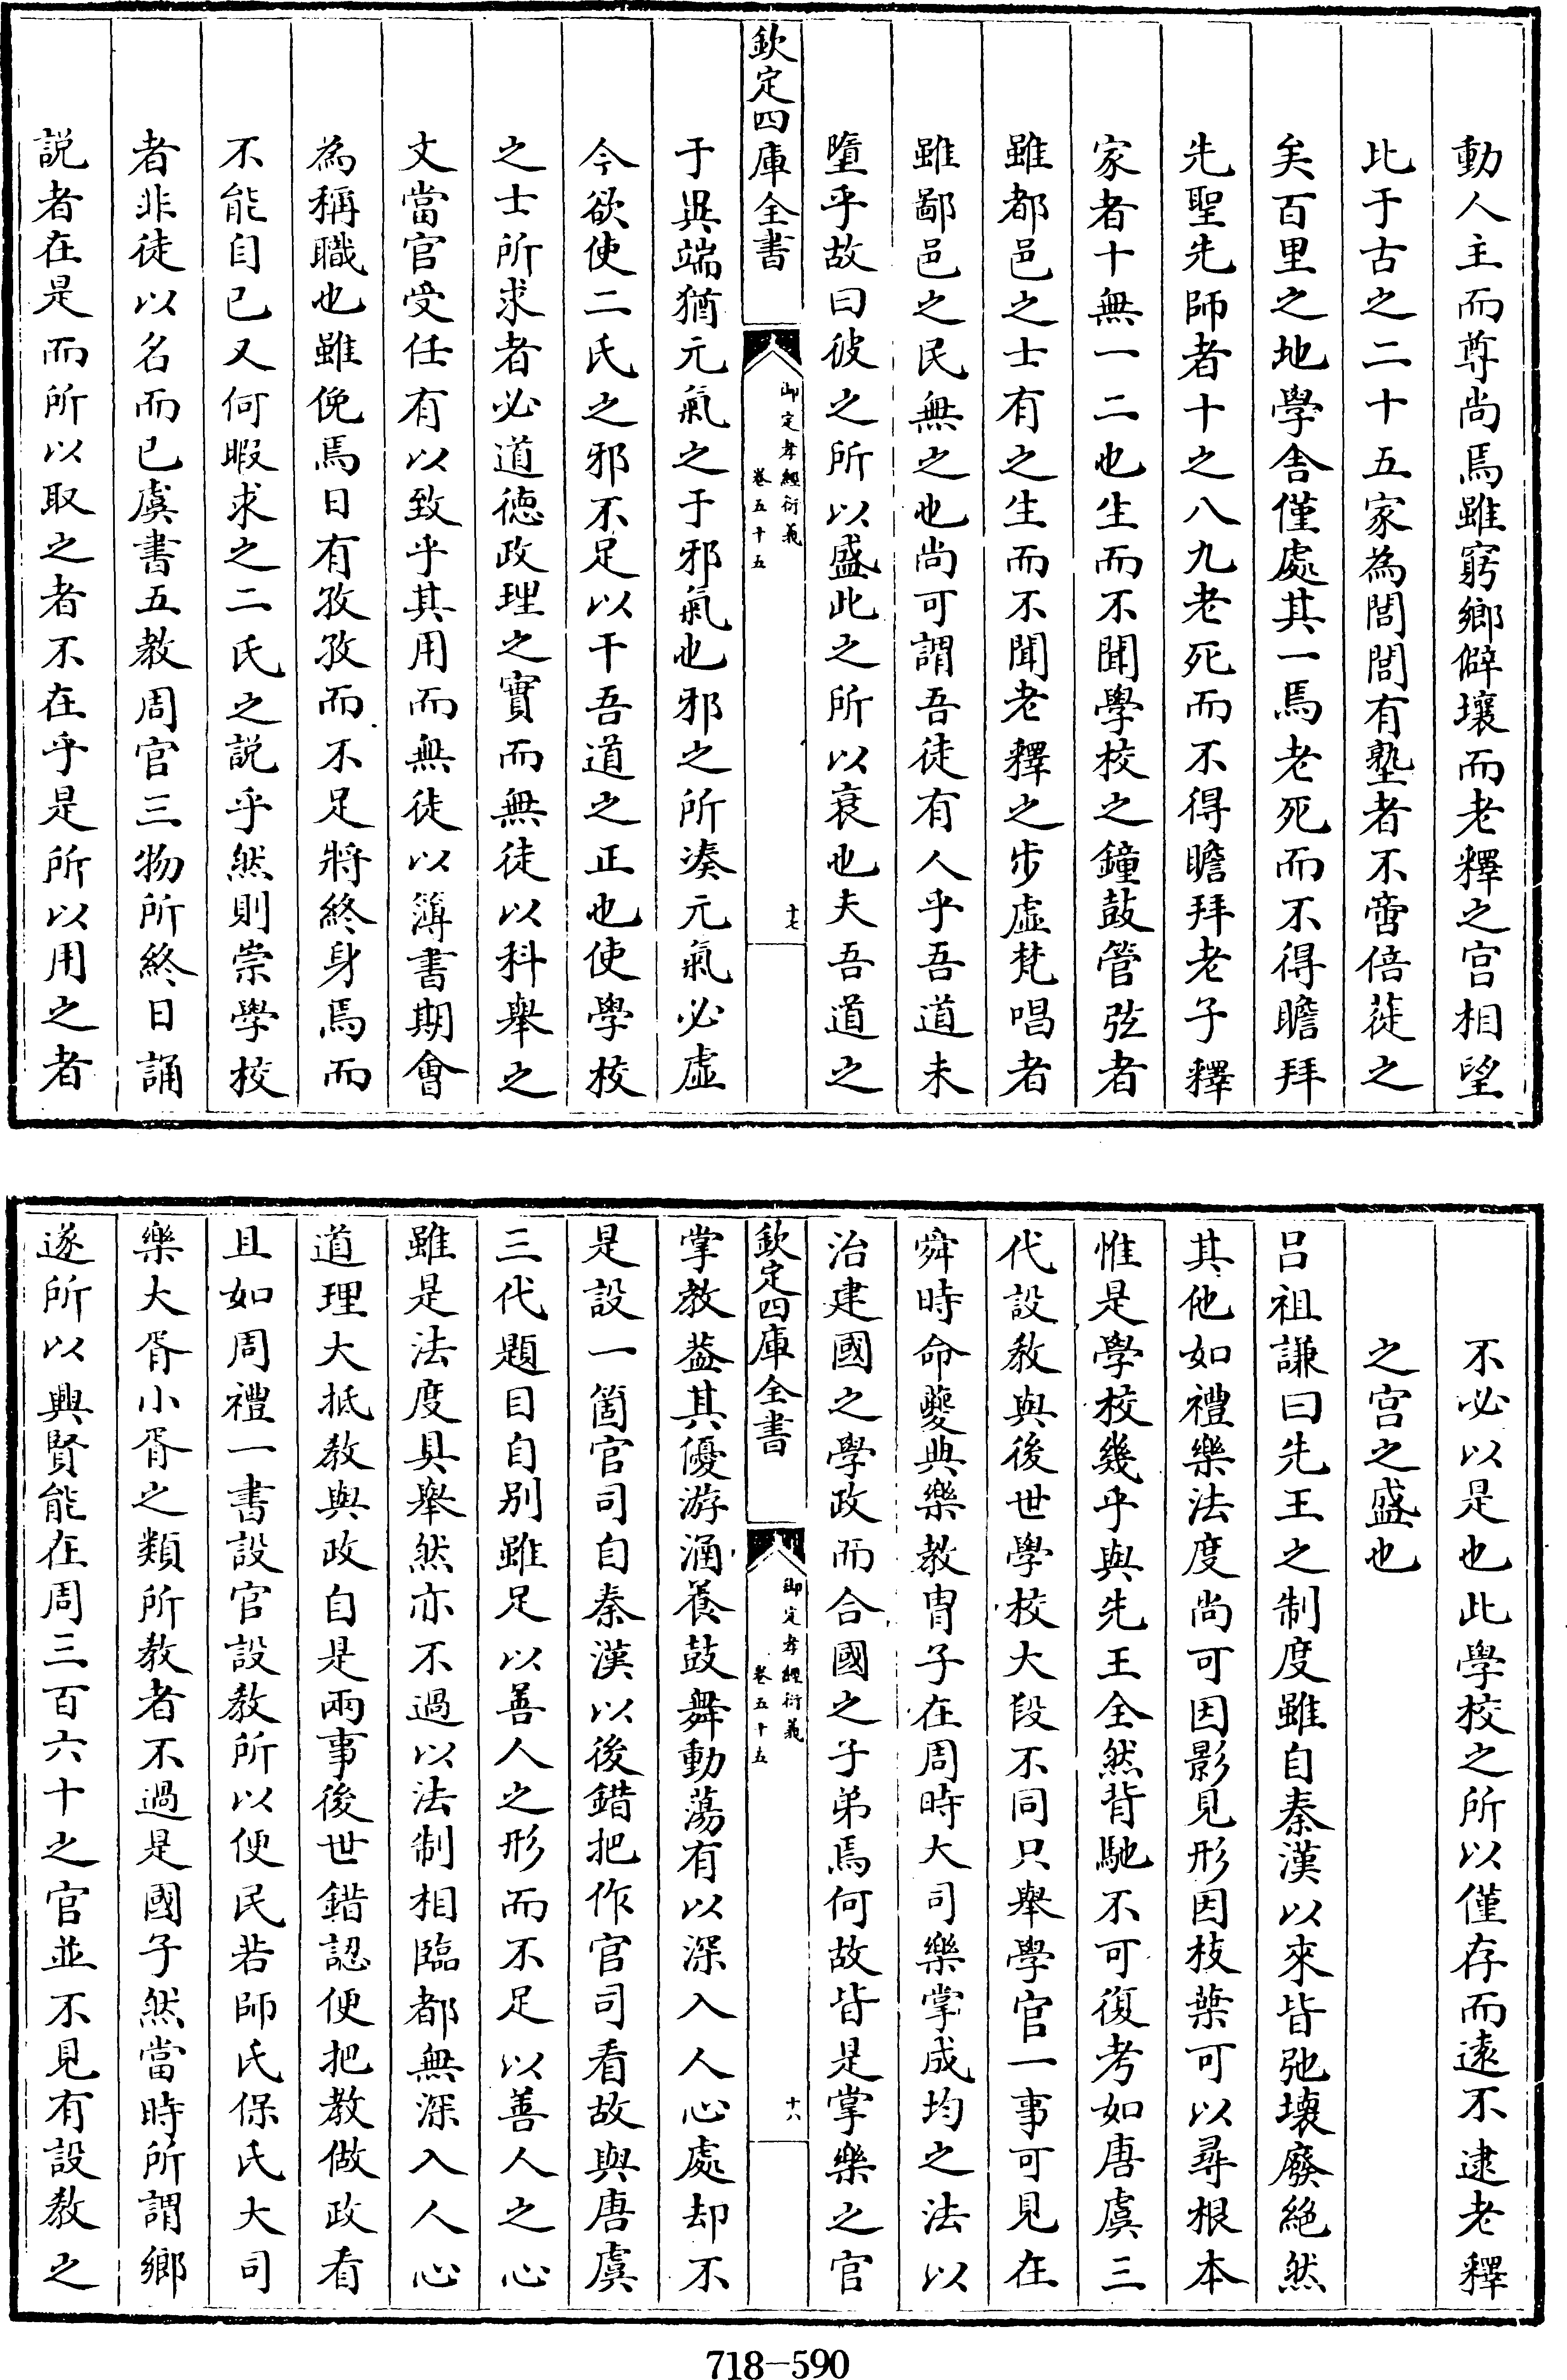 動人主而尊尚焉雖窮鄉僻壤而老釋之宫相望
比于古之二十五家為閭閭有塾者不啻倍蓰之
矣百里之地學舍僅處其一焉老死而不得瞻拜
先聖先師者十之八九老死而不得瞻拜老子釋
家者十無一二也生而不聞學校之鐘鼓管弦者
雖都邑之士有之生而不聞老釋之步虛梵唱者
雖鄙邑之民無之也尚可謂吾徒有人乎吾道未
墮乎故曰彼之所以盛此之所以衰也夫吾道之
欽定四庫全書
御定孝經衍義
卷五十五
十七
于異端猶元氣之于邪氣也邪之所湊元氣必虛
今欲使二氏之邪不足以干吾道之正也使學校
之士所求者必道德政理之實而無徒以科舉之
文當官受任有以致乎其用而無徒以簿書期會
為稱職也雖俛焉日有孜孜而不足將終身焉而
不能自已又何暇求之二氏之説乎然則崇學校
者非徒以名而已虞書五教周官三物所終日誦
説者在是而所以取之者不在乎是所以用之者
不必以是也此學校之所以僅存而逺不逮老釋
之宫之盛也
吕祖謙曰先王之制度雖自秦漢以來皆弛壊廢絶然
其他如禮樂法度尚可因影見形因枝葉可以尋根本
惟是學校幾乎與先王全然背馳不可復考如唐虞三
代設教與後世學校大段不同只舉學官一事可見在
舜時命夔典樂教胄子在周時大司樂掌成均之法以
治建國之學政而合國之子弟焉何故皆是掌樂之官
欽定四庫全書
御定孝經衍義
卷五十五
十八
掌教葢其優游涵養鼓舞動蕩有以深入人心處却不
是設一箇官司自秦漢以後錯把作官司看故與唐虞
三代題目自别雖足以善人之形而不足以善人之心
雖是法度具舉然亦不過以法制相臨都無深入人心
道理大抵教與政自是兩事後世錯認便把教做政看
且如周禮一書設官設教所以便民若師氏保氏大司
樂大胥小胥之類所教者不過是國子然當時所謂鄉
遂所以興賢能在周三百六十之官並不見有設教之
718-590